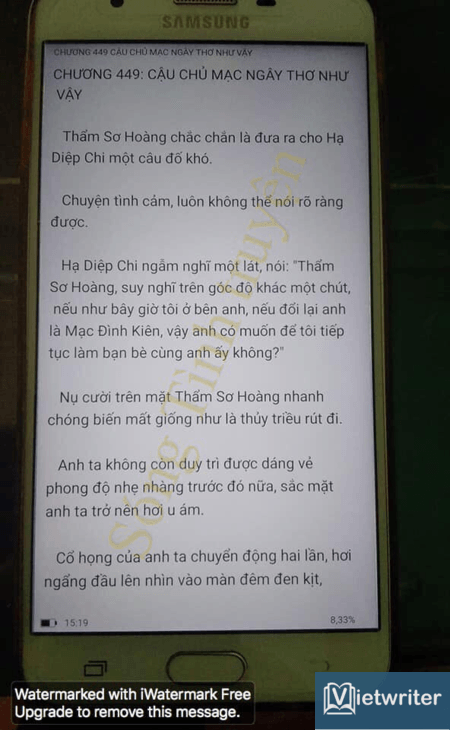 SAMSUNG
CHƯƠNG 449 CẬU CHỦ MẠC NGÂY THƠ NHƯ VẬY
CHƯƠNG 449: CẬU CHỦ MẠC NGÂY THƠ NHƯ
VẬY
Thẩm Sơ Hoàng chắc chắn là đưa ra cho Hạ
Diệp Chi một câu đố khó.
Chuyện tình cảm, luôn không thể nói rõ ràng
được.
Hạ Diệp Chi ngẫm nghĩ một lát, nói: "Thẩm
Sơ Hoàng, suy nghĩ trên góc độ khác một chút,
nếu như bây giờ tôi ở bên anh, nếu đổi lại anh
là Mạc Đình Kiên, vậy anh có muốn để tôi tiếp
tục làm bạn bè cùng anh ấy không?"
Nụ cười trên mặt Thẩm Sơ Hoàng nhanh
chóng biến mất giống như là thủy triều rút đi.
Anh ta không còn duy trì được dáng vẻ
phong độ nhẹ nhàng trước đó nữa, sắc mặt
anh ta trở nên hơi u ám.
Cổ họng của anh ta chuyển động hai lần, hơi
ngẩng đầu lên nhìn vào màn đêm đen kịt,
15:19
8,33%
Sóng Tình truyện
Watermarked with iWatermark Free
Upgrade to remove this message.
Vietwriter